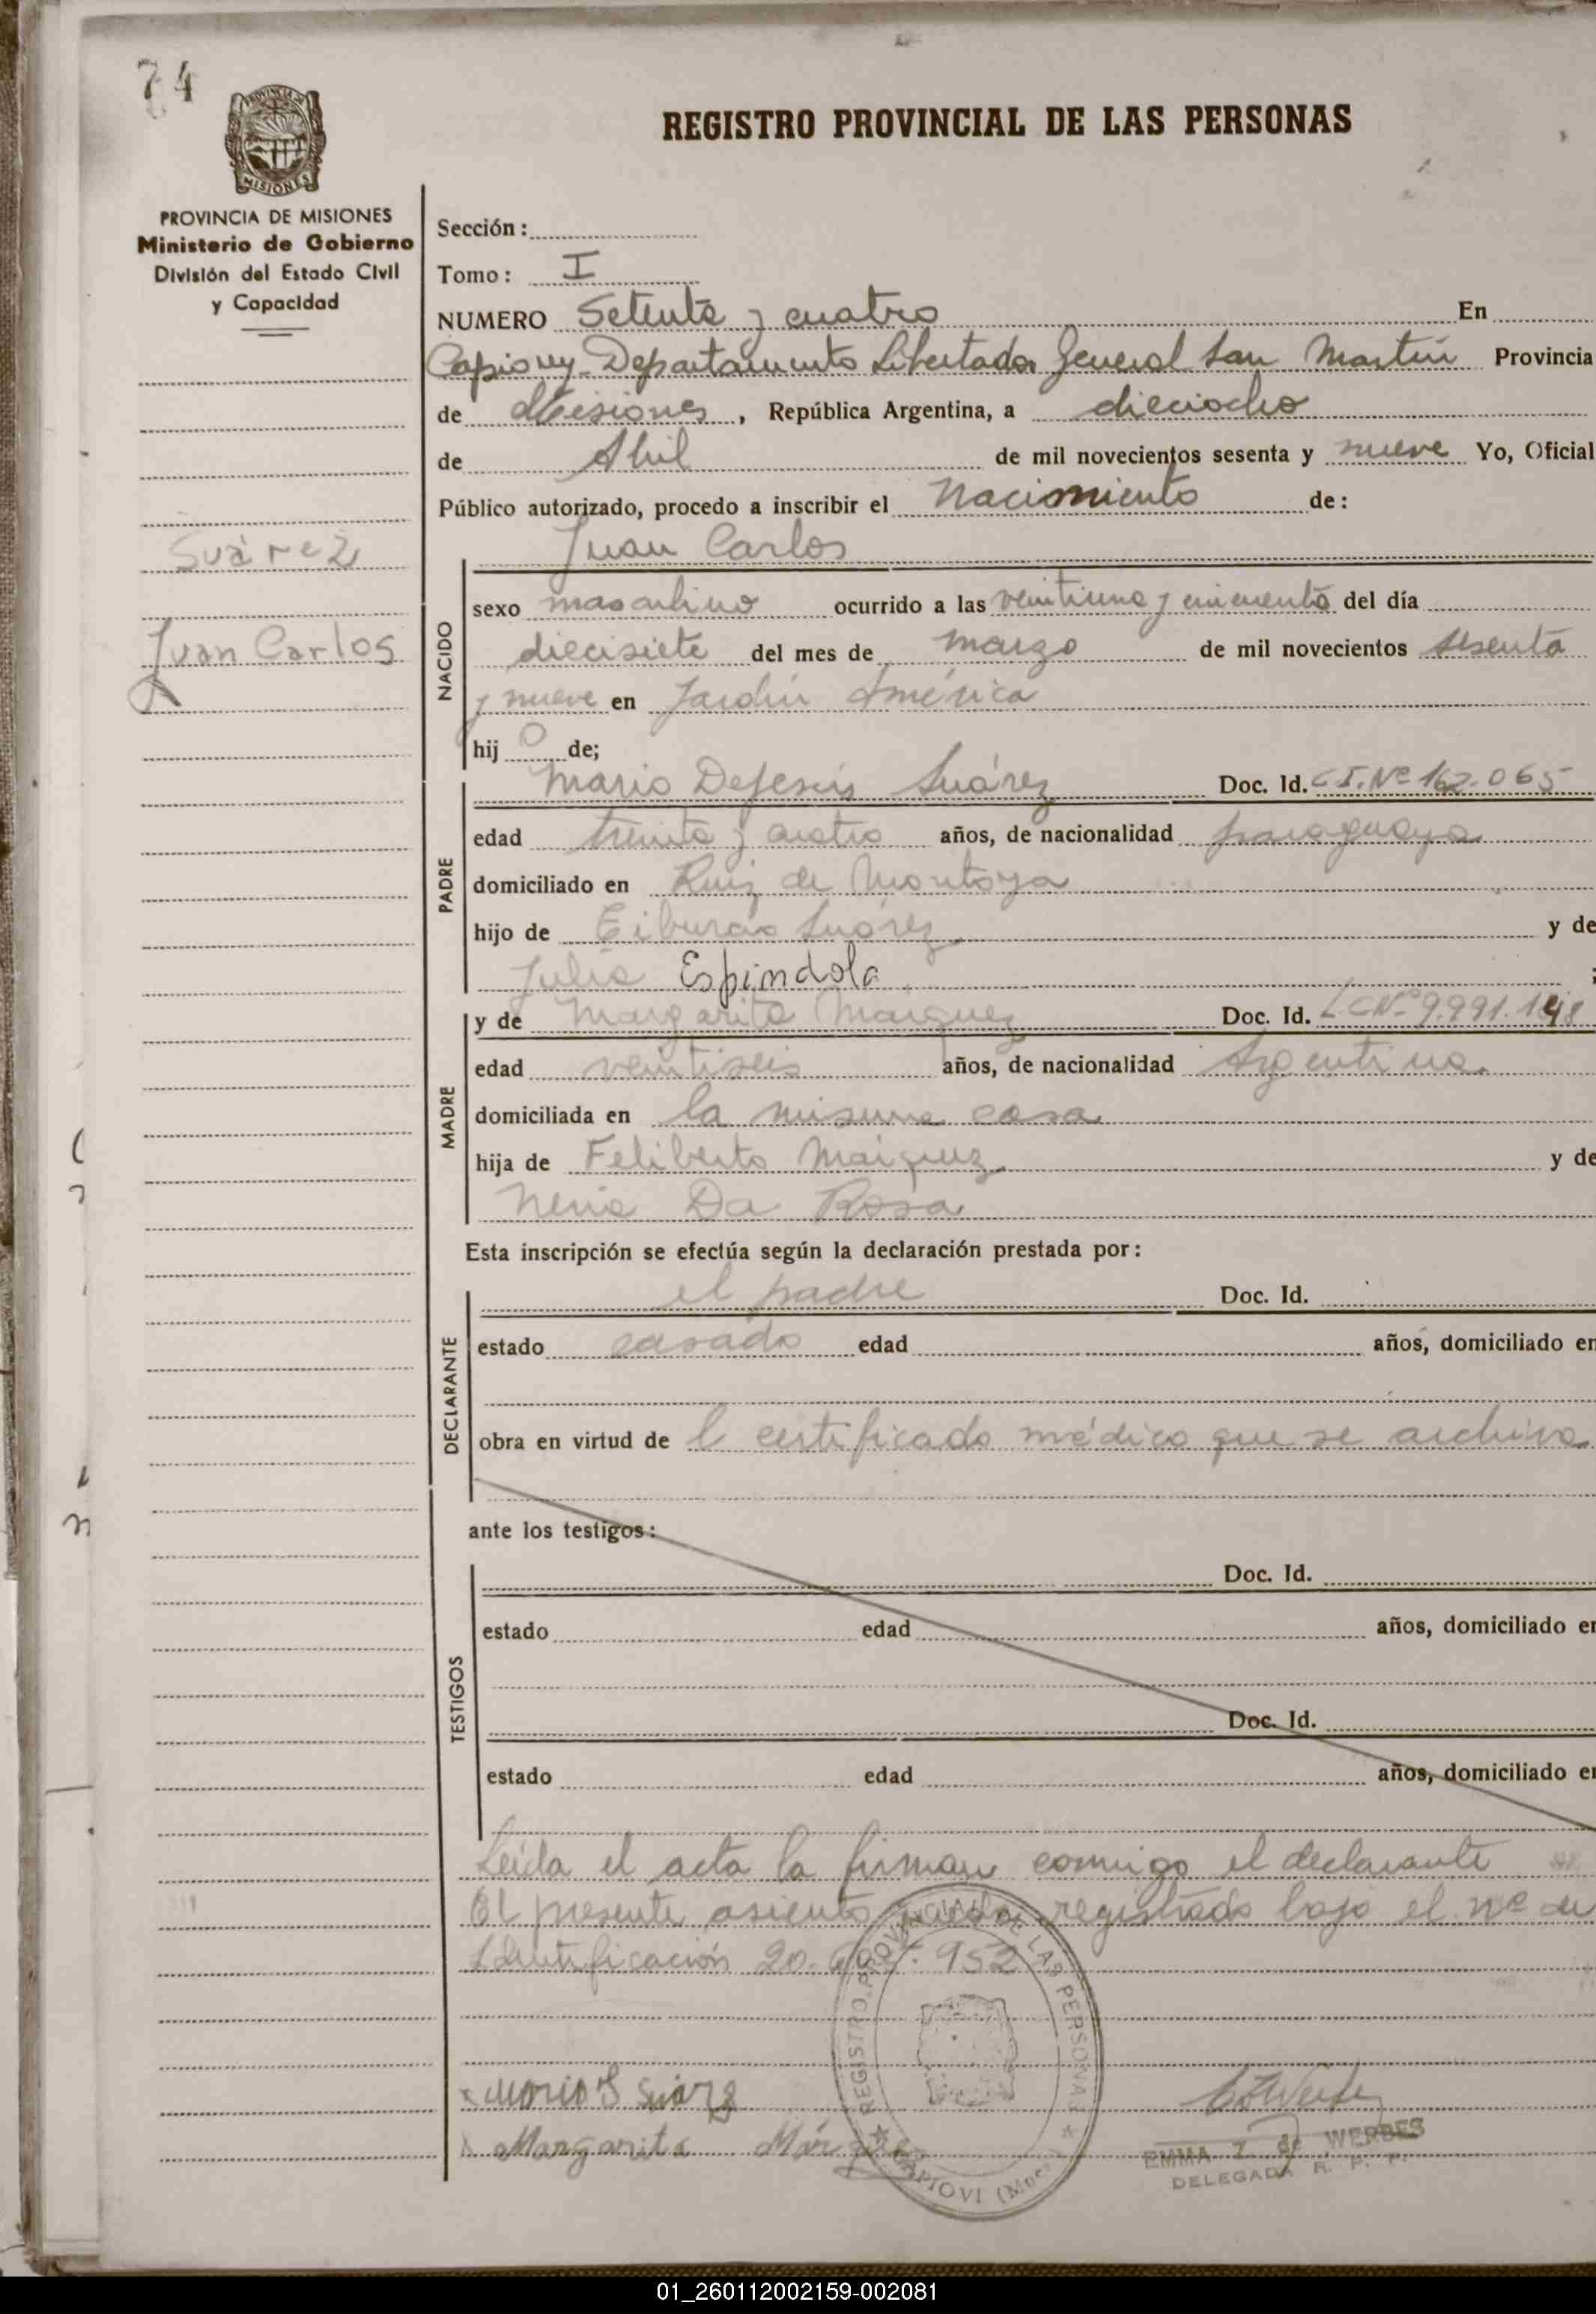 74
PROVINCIA DE
MISIONES
REGISTRO PROVINCIAL DE LAS PERSONAS
PROVINCIA DE MISIONES
Ministerio de Gobierno
División del Estado Civil
y Capacidad
Suárez
Juan Carlos
Sección:
Tomo: I
NUMERO Setenta y cuatro En
Capiovy Departamento Libertador General San Martín Provincia
de Misiones, República Argentina, a dieciocho
de Abril de mil novecientos sesenta y nueve Yo, Oficial
Público autorizado, procedo a inscribir el Nacimiento de:
Juan Carlos
NACIDO
sexo masculino ocurrido a las veintiuna y cincuenta del día
diecisiete del mes de marzo de mil novecientos sesenta
y nueve en Jardín América
hijo de;
PADRE
Mario DeJesús Suárez Doc. Id. C.I. Nº 162.065
edad treinta y cuatro años, de nacionalidad paraguaya
domiciliado en Ruiz de Montoya
hijo de Eiburcio Suárez y de
Julia Espindola ;
MADRE
y de Margarita Marquez Doc. Id. L.C.Nº 9.991.148
edad veintiseis años, de nacionalidad Argentina
domiciliada en la misma casa
hija de Feliberto Marquez y de
Da Rosa
Esta inscripción se efectúa según la declaración prestada por:
DECLARANTE
el padre Doc. Id.
estado casado edad años, domiciliado en
obra en virtud de l certificado médico que se archiva
ante los testigos:
TESTIGOS
Doc. Id.
estado edad años, domiciliado en
Doc. Id.
estado edad años, domiciliado en
Leida el acta la firman conmigo el declarante
El presente asiento queda registrado bajo el nº de
Identificación 20. 952
REGISTRO PROVINCIAL DE LAS PERSONAS
CAPIOVI (Mnes.)
Mario J Suarez
Margarita Márquez
EMMA Z. de WERBES
DELEGADA R. P. P.
01_260112002159-002081